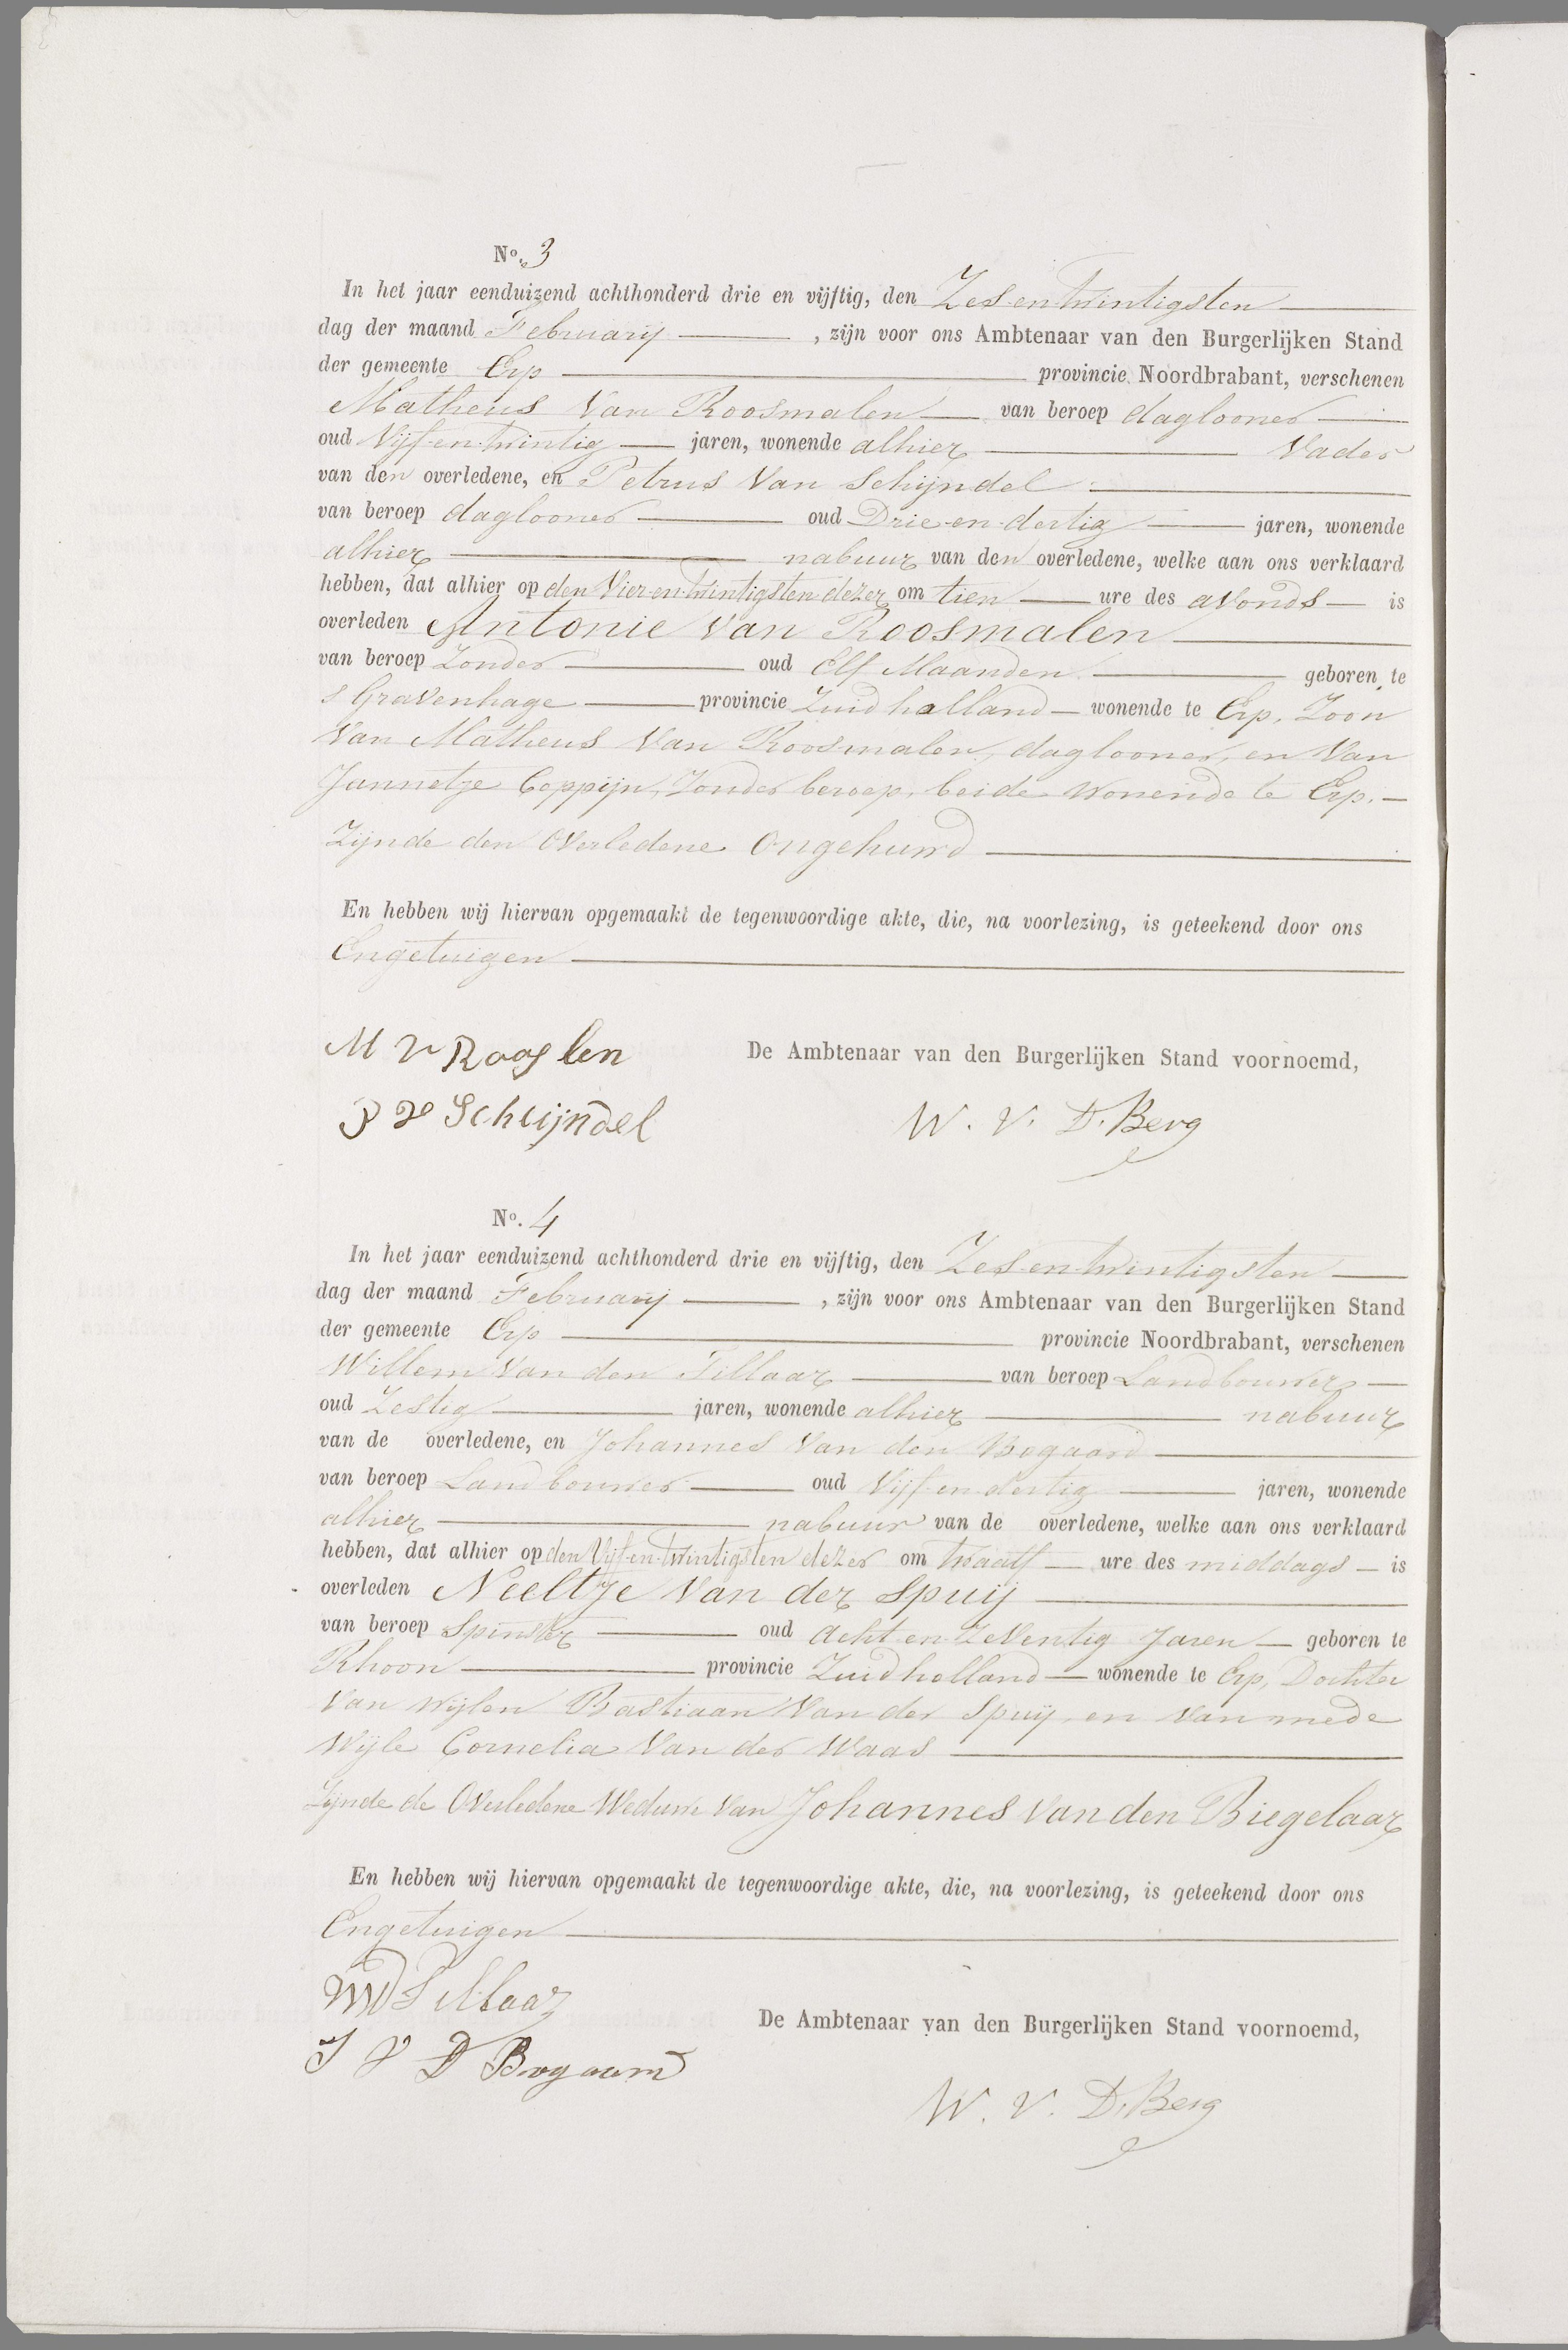 No. 3
In het jaar eenduizend achthonderd drie en vijftig, den Zes-en-twintigsten
dag der maand February, zijn voor ons Ambtenaar van den Burgerlijken Stand
der gemeente Erp provincie Noordbrabant, verschenen
Matheus Van Roosmalen van beroep daglooner
oud Vijf-en-twintig jaren, wonende alhier Vader
van den overledene, en Petrus Van Schijndel
van beroep daglooner oud Drie-en-dertig jaren, wonende
alhier nabuur van den overledene, welke aan ons verklaard
hebben, dat alhier op den Vier-en-twintigsten dezer om tien ure des avonds is
overleden Antonie Van Roosmalen
van beroep Zonder oud Elf Maanden geboren te
s Gravenhage provincie Zuidholland wonende te Erp, Zoon
Van Matheus Van Roosmalen, daglooner, en Van
Jannetje Coppijn, Zonder beroep, beide wonende te Erp.
Zijnde den Overledene Ongehuwd
En hebben wij hiervan opgemaakt de tegenwoordige akte, die, na voorlezing, is geteekend door ons
En getuigen
M V Rooslen De Ambtenaar van den Burgerlijken Stand voornoemd,
P V Scheijndel W. V. D. Berg
No. 4
In het jaar eenduizend achthonderd drie en vijftig, den Zes-en-twintigsten
dag der maand February, zijn voor ons Ambtenaar van den Burgerlijken Stand
der gemeente Erp provincie Noordbrabant, verschenen
Willem Van den Tillaar van beroep Landbouwer
oud Zestig jaren, wonende alhier nabuur
van de overledene, en Johannes Van den Bogaard
van beroep Landbouwer oud Vijf-en-dertig jaren, wonende
alhier nabuur van de overledene, welke aan ons verklaard
hebben, dat alhier op den Vijf-en-twintigsten dezer om twaalf ure des middags is
overleden Neeltje Van der Spuij
van beroep Spinster oud Acht-en-Zeventig Jaren geboren te
Rhoon provincie Zuidholland wonende te Erp, Dochter
Van wijlen Bastiaan Van der Spuij, en Van mede
Wijle Cornelia Van der Waas
Zijnde de Overledene Weduwe Van Johannes Van den Biegelaar
En hebben wij hiervan opgemaakt de tegenwoordige akte, die, na voorlezing, is geteekend door ons
En getuigen
WVD Tillaar De Ambtenaar van den Burgerlijken Stand voornoemd,
J V D Bogaard W. V. D. Berg